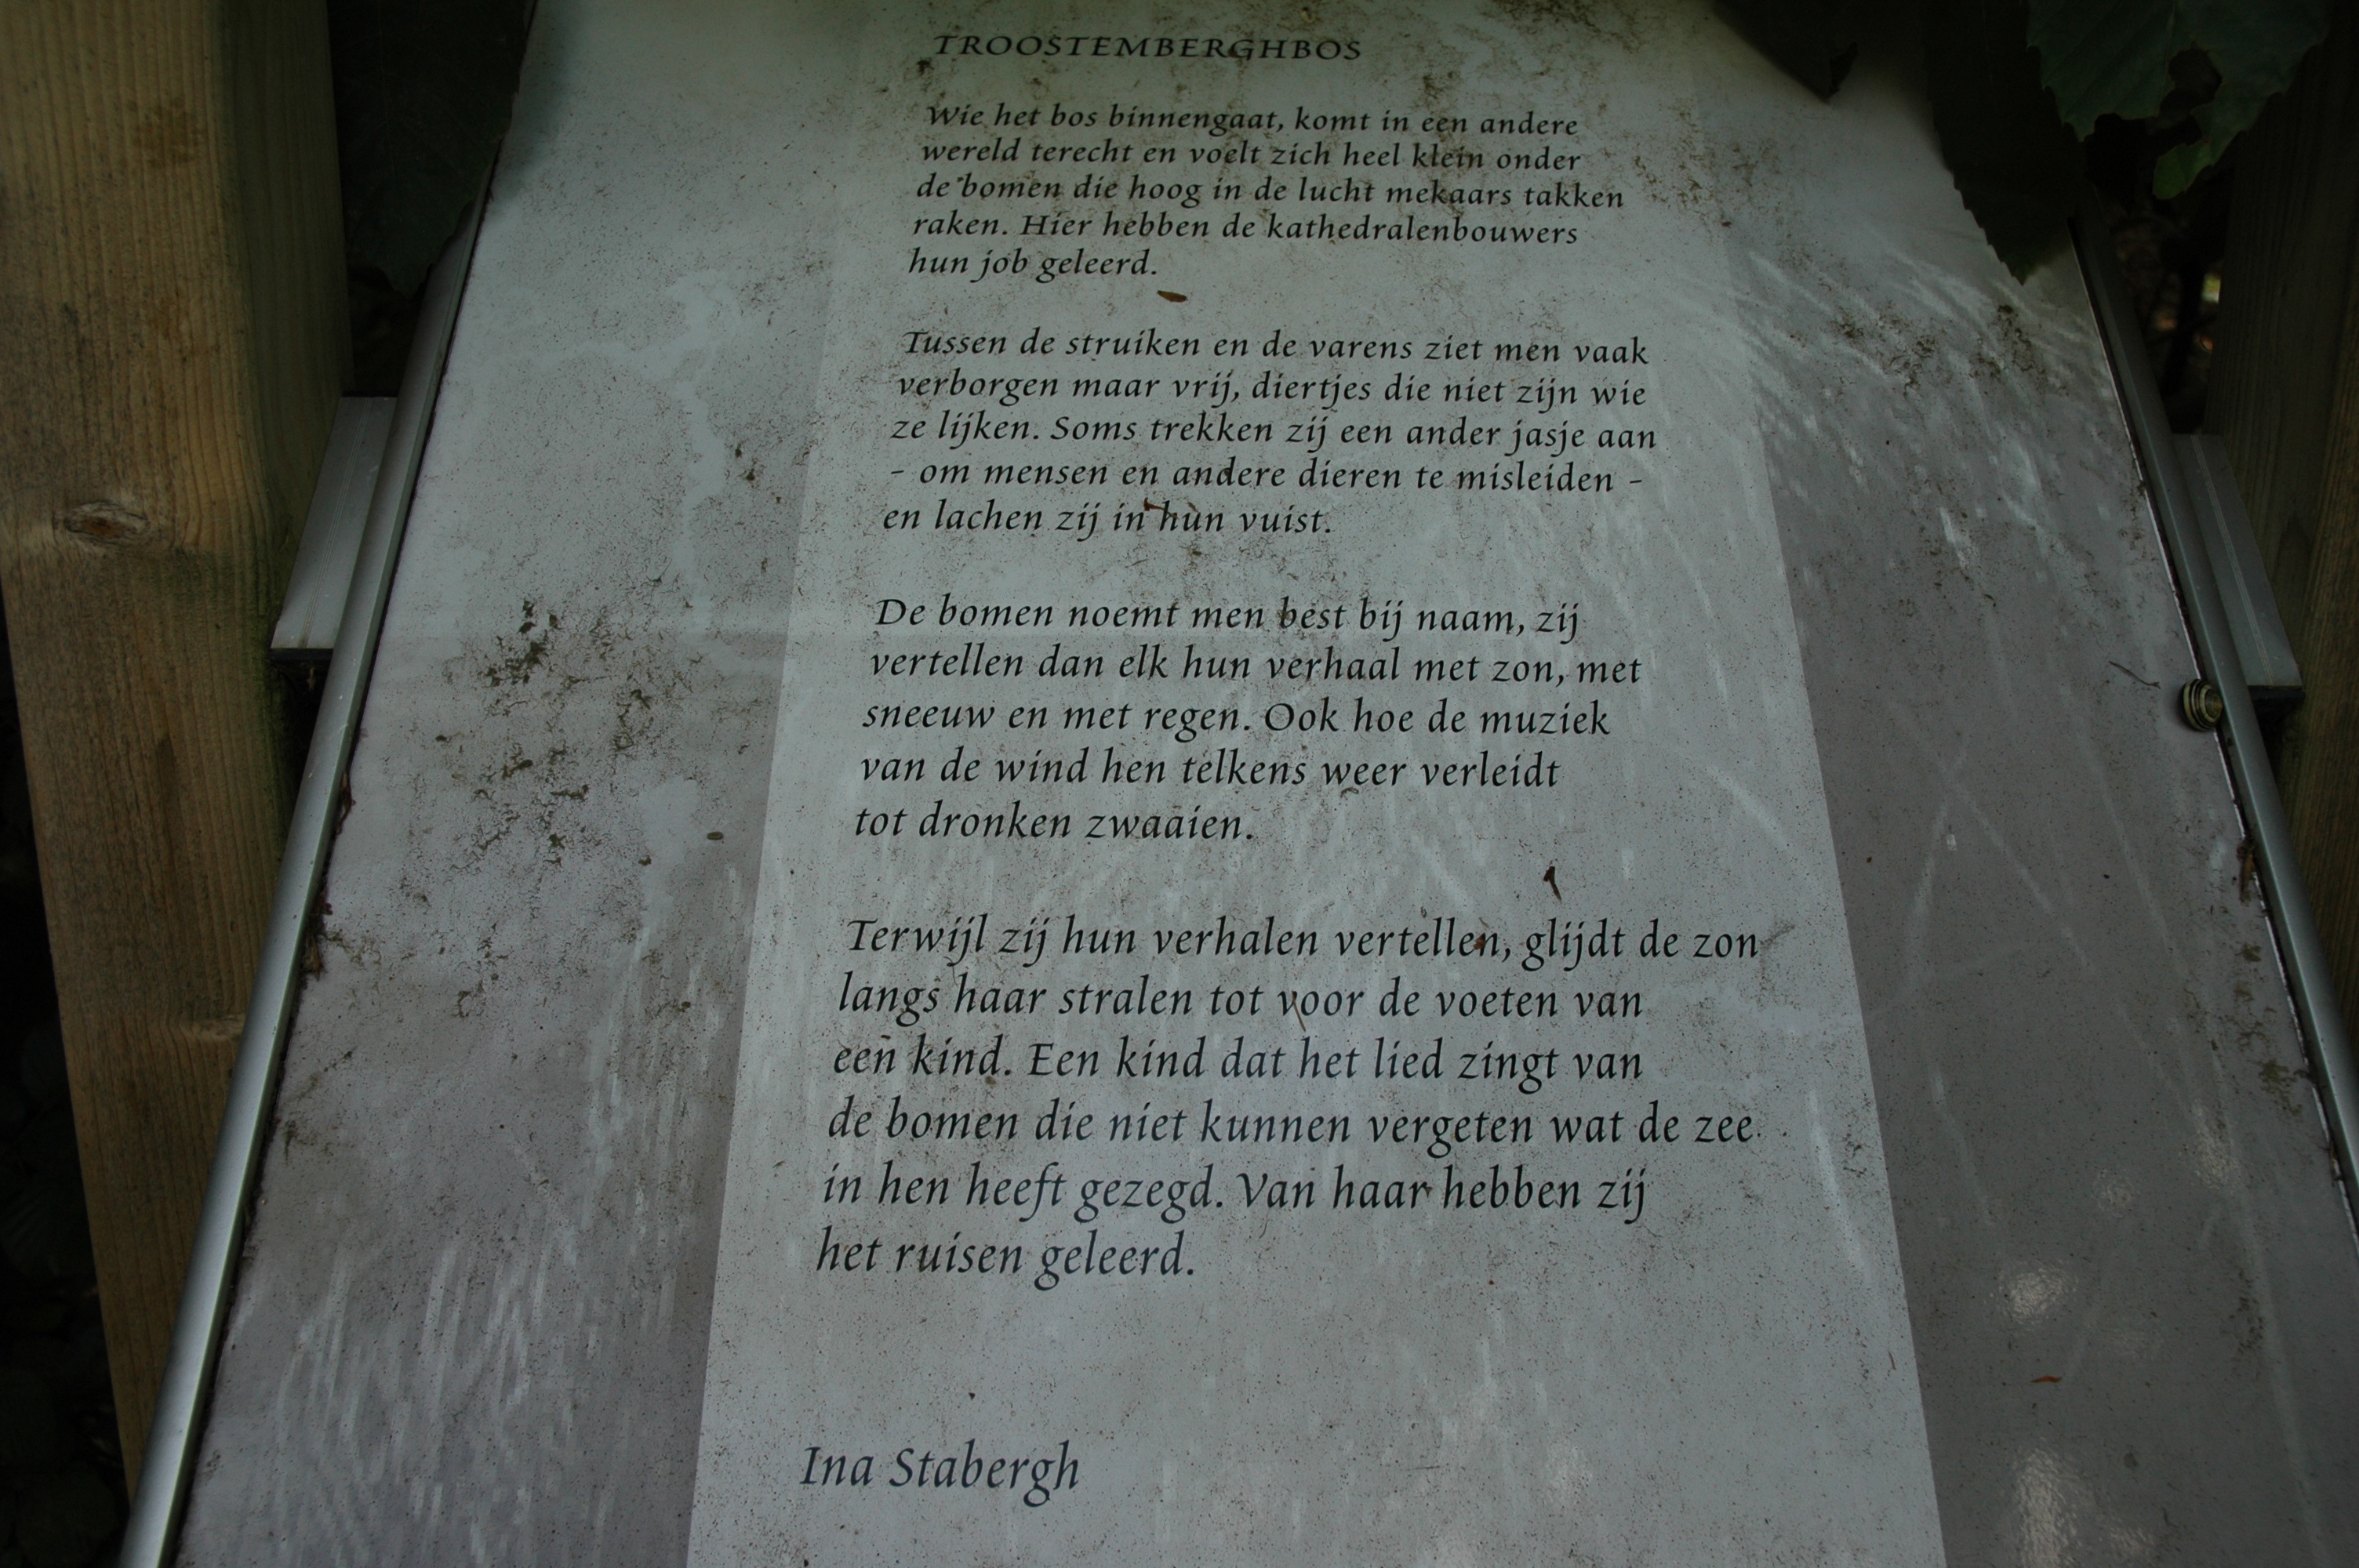 TROOSTEMBERGHBOS
Wie het bos binnengaat, komt in een andere
wereld terecht en voelt zich heel klein onder
de bomen die hoog in de lucht mekaars takken
raken. Hier hebben de kathedralenbouwers
hun job geleerd.
Tussen de struiken en de varens ziet men vaak
verborgen maar vrij, diertjes die niet zijn wie
ze lijken. Soms trekken zij een ander jasje aan
- om mensen en andere dieren te misleiden -
en lachen zij in hun vuist.
De bomen noemt men best bij naam, zij
vertellen dan elk hun verhaal met zon, met
sneeuw en met regen. Ook hoe de muziek
van de wind hen telkens weer verleidt
tot dronken zwaaien.
Terwijl zij hun verhalen vertellen, glijdt de zon
langs haar stralen tot voor de voeten van
een kind. Een kind dat het lied zingt van
de bomen die niet kunnen vergeten wat de zee
in hen heeft gezegd. Van haar hebben zij
het ruisen geleerd.
Ina Stabergh